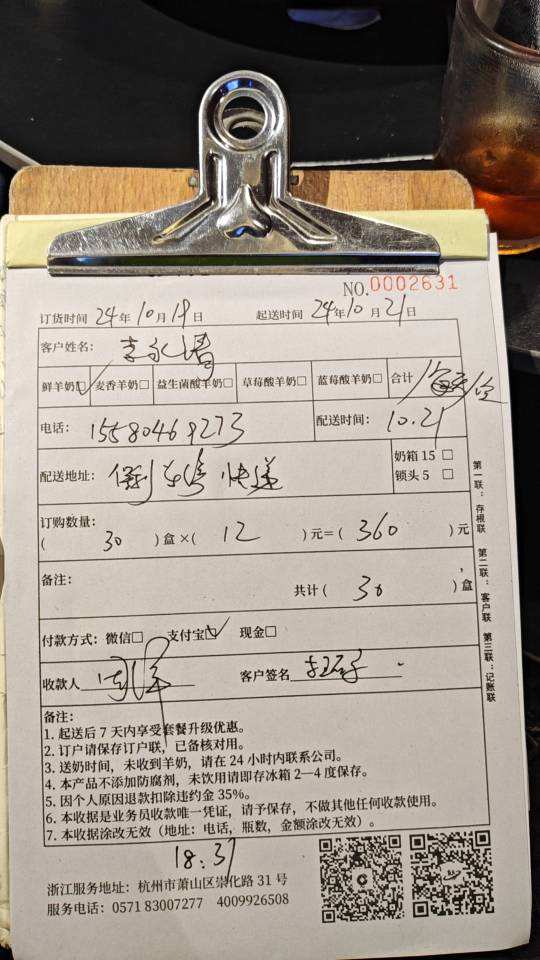 NO.0002631
订货时间 24年10月19日 起送时间 24年10月21日
客户姓名: 李永清
鲜羊奶☑ 麦香羊奶□ 益生菌酸羊奶□ 草莓酸羊奶□ 蓝莓酸羊奶□ 合计
电话: 15580469273 配送时间: 10.21
配送地址: 快递 奶箱 15 □
锁头 5 □
订购数量:
( 30 ) 盒 ×( 12 ) 元=( 360 ) 元
备注:
共计 ( 30 ) 盒
付款方式: 微信□ 支付宝☑ 现金□
收款人 客户签名
第一联：存根联 第二联：客户联 第三联：记账联
备注:
1. 起送后 7 天内享受套餐升级优惠。
2. 订户请保存订户联, 已备核对用。
3. 送奶时间, 未收到羊奶, 请在 24 小时内联系公司。
4. 本产品不添加防腐剂, 未饮用请即存冰箱 2—4 度保存。
5. 因个人原因退款扣除违约金 35%。
6. 本收据是业务员收款唯一凭证, 请予保存, 不做其他任何收款使用。
7. 本收据涂改无效 (地址: 电话, 瓶数, 金额涂改无效) 。
18:37
浙江服务地址: 杭州市萧山区崇化路 31 号
服务电话: 0571 83007277 4009926508